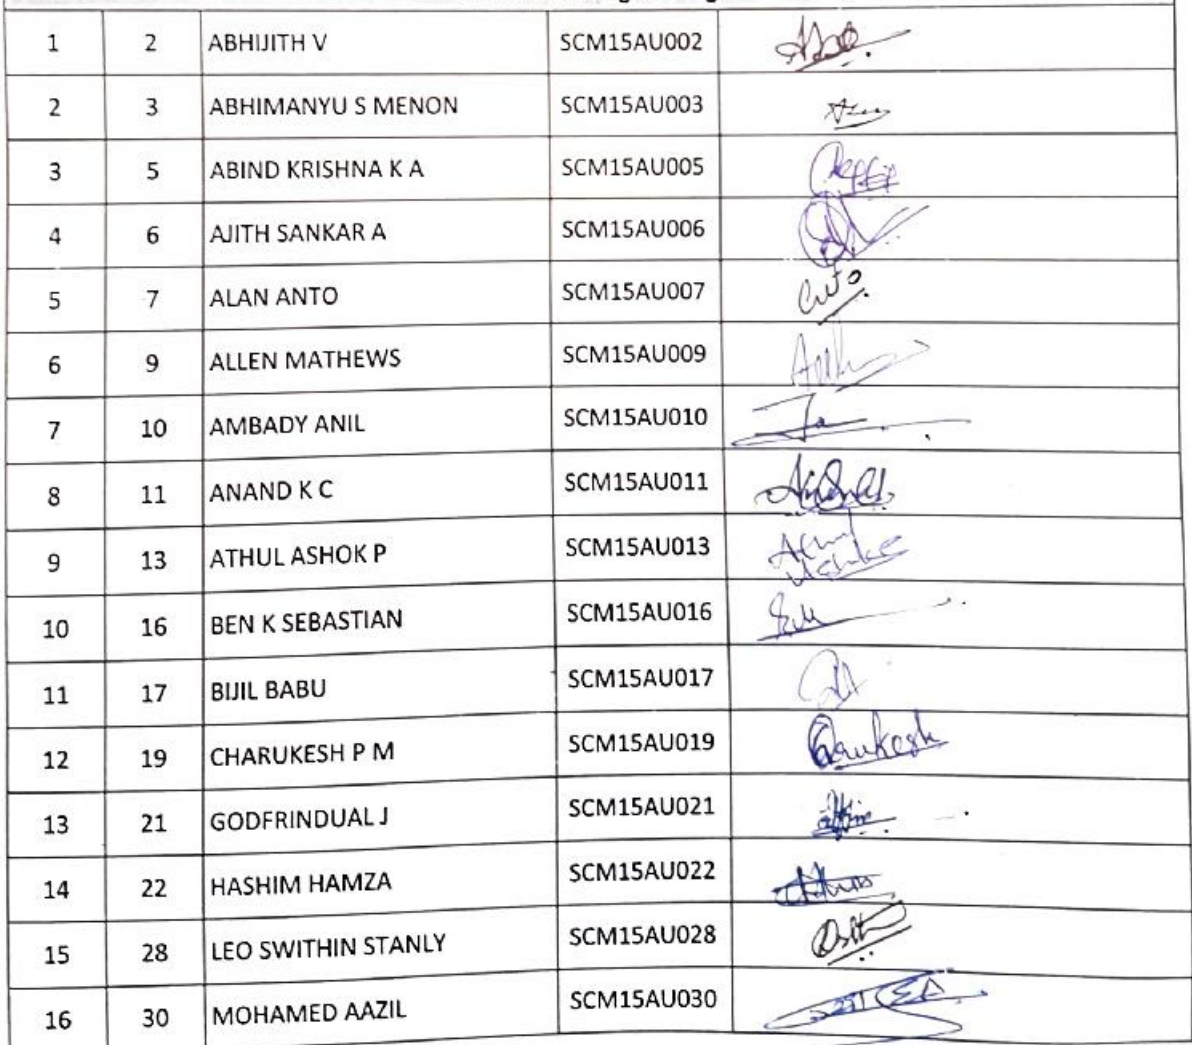 1 2 ABHIJITH V SCM15AU002
2 3 ABHIMANYU S MENON SCM15AU003
3 5 ABIND KRISHNA K A SCM15AU005
4 6 AJITH SANKAR A SCM15AU006
5 7 ALAN ANTO SCM15AU007
6 9 ALLEN MATHEWS SCM15AU009
7 10 AMBADY ANIL SCM15AU010
8 11 ANAND K C SCM15AU011
9 13 ATHUL ASHOK P SCM15AU013
10 16 BEN K SEBASTIAN SCM15AU016
11 17 BIJIL BABU SCM15AU017
12 19 CHARUKESH P M SCM15AU019 Charukesh
13 21 GODFRINDUAL J SCM15AU021
14 22 HASHIM HAMZA SCM15AU022
15 28 LEO SWITHIN STANLY SCM15AU028
16 30 MOHAMED AAZIL SCM15AU030